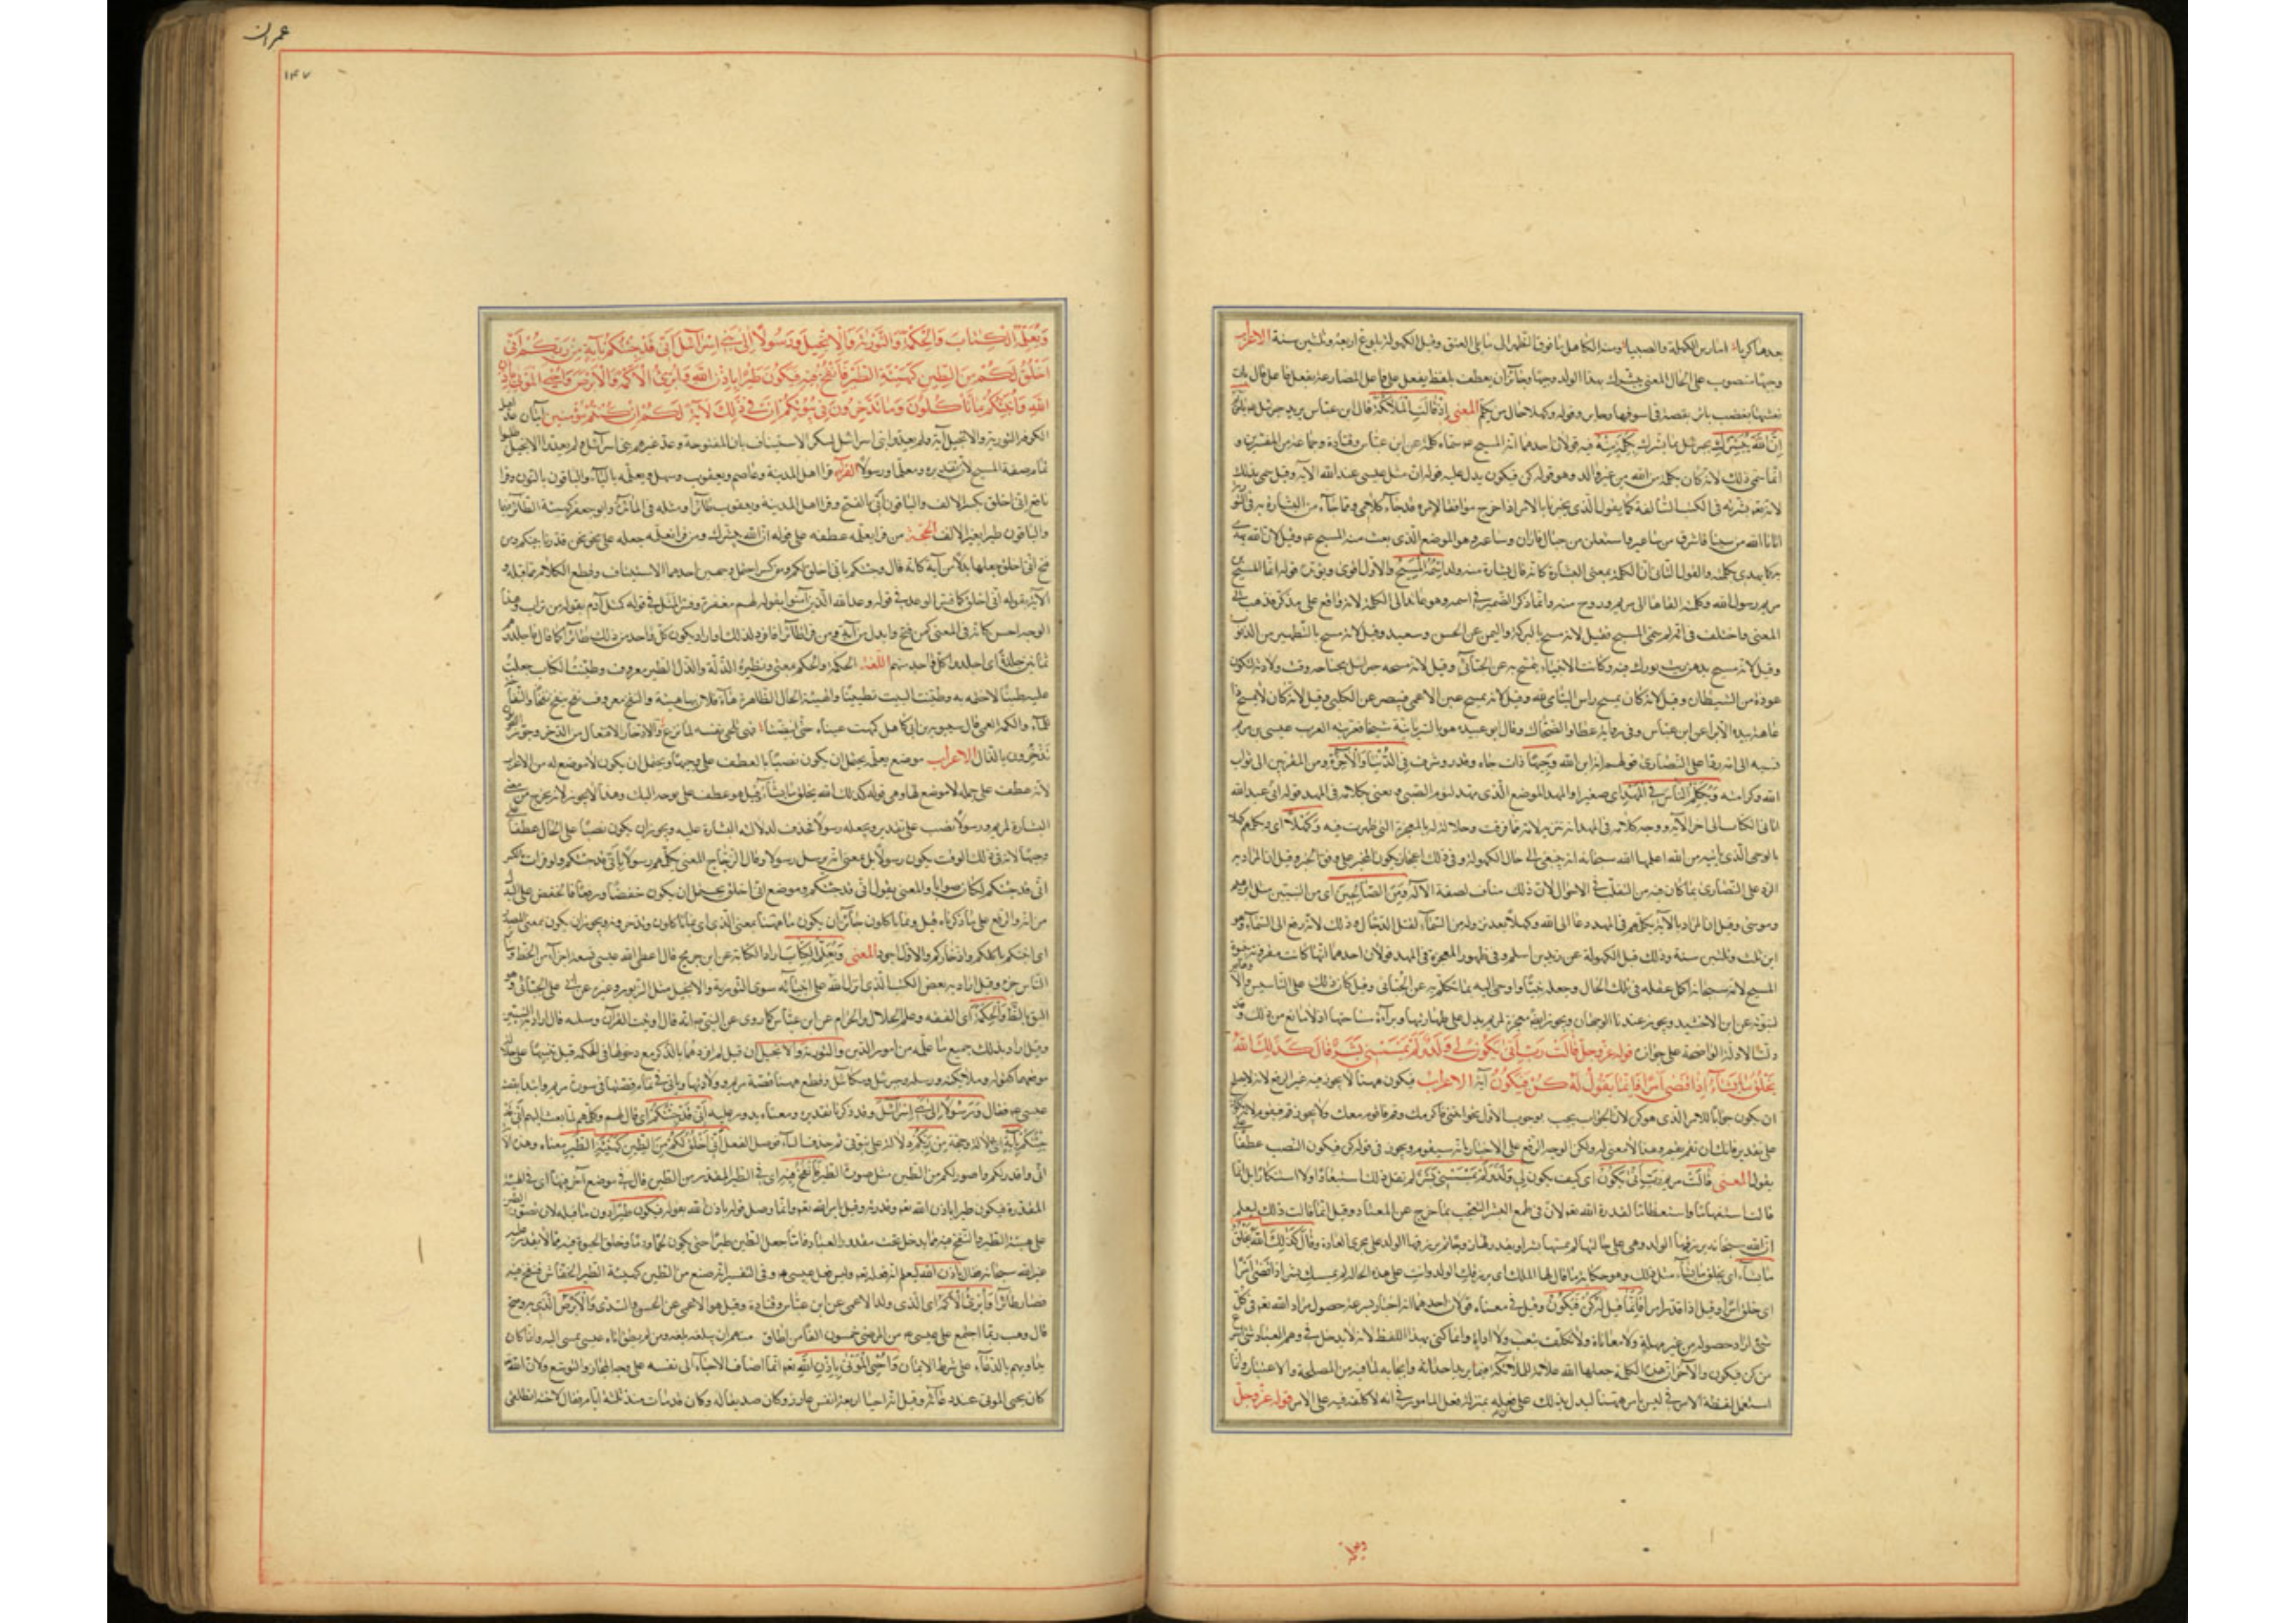 وجيها منصوب على الحال المعنى يبشرك بهذا الولد وجيها وجائز ان يعطف بلفظ يفعل على فاعل المضارعة يفعل فاعل قال بات
يعشيها بعضب باتر يقصد في اسوقها وجاير وقوله وكهلا حال من يكلم المعنى إذ قالت الملائكة قال ابن عباس يريد جبرئيل
إن الله يبشرك يخبرك بما يسرك بكلمة منه فيه قولان احدهما انه المسيح سماه كلمة عن ابن عباس وقتادة وجماعة من المفسرين و
انما سمى ذلك لانه كان بكلمة من الله من غير والد وهو قوله كن فيكون يدل عليه قوله ان مثل عيسى عند الله الآية وقيل سمى بذلك
لان الله بشر به في الكتب السالفة كما يقول الذى يخبرنا بالامر اذا خرج موافقا لامره قد جاء كلامى ومما جاء من البشارة به في
اتانا الله من سينا فاشرق من ساعير واستعلن من جبال فاران وساعير هو الموضع الذى بعث منه المسيح وقيل لان الله
يهدى بكلمته والقول الثانى ان الكلمة بمعنى البشارة كانه قال بشارة منه ولد اسمه المسيح والاول اقوى ويؤيده قوله انما المسيح
مريم رسول الله وكلمته القاها الى مريم وروح منه وانما ذكر الضمير في اسمه وهو عائد الى الكلمة لانه واقع على مذكر فذهب
المعنى واختلف في انه لم سمى المسيح فقيل لانه مسح بالبركة واليمن عن الحسن وسعيد وقيل لانه مسح بالتطهير من الذنوب
وقيل لانه مسح بدهن زيت بورك فيه وكانت الانبياء تمسح به عن الجبائى وقيل لانه مسحه جبرائيل بجناحه وقت ولادته ليكون
عوذة من الشيطان وقيل لانه كان يمسح راس اليتامى لله وقيل لانه يمسح عين الاعمى فيبصر عن الكلبى وقيل لانه كان لا يمسح ذا
عاهة بيده الا برأ عن ابن عباس وفى رواية عطا والضحاك وقال ابو عبيدة هو بالسريانية مشيحا فعربته العرب عيسى بن مريم
نسبه الى امه ردا على النصارى قولهم انه ابن الله وجيها ذات جاه وقدر وشرف في الدنيا والآخرة ومن المقربين الى ثواب
الله وكرامته ويكلم الناس في المهد اى صغيرا والمهد الموضع الذى يمهد لنوم الصبى ويعنى بكلامه في المهد قوله انى عبد الله
اتانى الكتاب الى اخر الاية ووجه كلامه في المهد انه تنزيه لامه مما قرفت به وجلالة له بالمعجزة التى ظهرت فيه وكهلا اى ويكلمهم كهلا
بالوحى الذى ياتيه من الله اعلمها الله سبحانه انه يبقى الى حال الكهولة وفى ذلك اعجاز لكون المخبر على وفق الخبر وقيل ان المراد به
الرد على النصارى بما كان فيه من التقلب في الاحوال لان ذلك مناف لصفة الاله ومن الصالحين اى من النبيين مثل ابرهيم
وموسى وقيل ان المراد بالاية يكلمهم في المهد دعا الى الله وكهلا بعد نزوله من السماء ليقتل الدجال وذلك لانه رفع الى السماء وهو
ابن ثلث وثلثين سنة وذلك قبل الكهولة عن زيد بن اسلم وفى ظهور المعجزة في المهد قولان احدهما انها كانت مقرونة بنبوة
المسيح لانه سبحانه اكمل عقله في تلك الحال وجعله نبيا واوحى اليه بما تكلم به عن الجبائى وقيل كان ذلك على التاسيس والا
لنبوته عن ابن الاخشيد ويجوز عندنا الوجهان ويجوز ايضا معجزة لمريم يدل على طهارتها وبراءة ساحتها اذ لا مانع من ذلك وقد
دلت الادلة الواضحة على جوازه قوله عز وجل قالت رب أنى يكون لي ولد ولم يمسسني بشر قال كذلك الله
يخلق ما يشاء إذا قضى أمرا فإنما يقول له كن فيكون آية الاعراب فيكون ههنا لا يجوز فيه غير الرفع لانه لا يصلح
ان يكون جوابا للامر الذى هو كن لان الجواب يجب بوجوب الاول نحو ائتنى فاكرمك وقم فاقوم معك ولا يجوز قم فيقوم لانه
على تقدير فانك ان تقم يقم وهذا لا معنى له ولكن الوجه الرفع على الاخبار بانه سيقوم ويجوز في قوله كن فيكون النصب عطفا
يقول المعنى قالت مريم رب أنى يكون اى كيف يكون لي ولد ولم يمسسني بشر لم تقل ذلك استبعادا ولا استنكارا بل انما
قالت استفهاما واستعظاما لقدرة الله تعالى لان في طبع البشر التعجب مما خرج عن المعتاد وقيل انما قالت ذلك ليعلم
ان الله سبحانه يرزقها الولد وهى على حالتها لم يمسها بشر او يقدر لها زوجا ثم يرزقها الولد على مجرى العادة وقال كذلك الله يخلق
ما يشاء اى يخلق ما يشاء مثل ذلك وهو حكاية ما قال لها الملك اى يرزقك الولد وانت على هذه الحالة لم يمسسك بشر إذا قضى أمرا
اى خلق امرا وقيل اذا قدر امرا فإنما يقول له كن فيكون وقيل في معناه قولان احدهما انه اخبار بسرعة حصول مراد الله تعالى في كل
شئ اراد حصوله من غير مهلة ولا معاناة ولا تكلف سبب ولا اداة وانما كنى بهذا اللفظ لانه لا يدخل في وهم العباد شئ
من كن فيكون والآخر ان هذه الكلمة جعلها الله علامة للملائكة فيما يريد احداثه وايجابه لما فيه من المصلحة والاعتبار وانما
استعمل لفظة الامر في ليس بامر ههنا ليدل بذلك على ان فعله بمنزلة فعل المامور في انه لا كلفة فيه على الامر قوله عز وجل
ويعلمه
عمران
١٤٧
ويعلمه الكتاب والحكمة والتورية والإنجيل ورسولا إلى بني إسرائيل أني قد جئتكم بآية من ربكم أني
أخلق لكم من الطين كهيئة الطير فأنفخ فيه فيكون طيرا بإذن الله وأبرئ الأكمه والأبرص وأحيي الموتى بإذن
الله وأنبئكم بما تأكلون وما تدخرون في بيوتكم إن في ذلك لآية لكم إن كنتم مؤمنين ايتان
الكوفى التورية والانجيل آية ولم يعدوا بنى اسرائيل لتنكر الاستيناف بان المفتوحة وعد غيرهم بنى اسرائيل ولم يعدوا الانجيل
تمام صفة المسيح لان تقديره ومعلما ورسولا القراءة قرا اهل المدينة وعاصم ويعقوب وسهل ويعلمه بالياء والباقون بالنون وقرا
نافع انى اخلق بكسر الالف والباقون انى بالفتح وقرا اهل المدينة ويعقوب طائرا ومثله في المائدة وابو جعفر كهيئة الطائر فيها
والباقون طيرا بغير الالف الحجة من قرا يعلمه عطفه على قوله ان الله يبشرك ومن قرا نعلمه جعله على نحو نحن قدرنا بينكم ومن
فتح انى اخلق جعلها بدلا من آية كانه قال وجئتكم بانى اخلق لكم ومن كسر احتمل وجهين احدهما الاستيناف وقطع الكلام مما قبله و
الآخر بقوله انى اخلق كما فسر الوعد في قوله وعد الله الذين آمنوا بقوله لهم مغفرة وفسر المثل في قوله كمثل آدم بقوله من تراب وهذا
الوجه احسن كانه في المعنى كمن فتح وابدل من آية ومن قرا طائرا فانه ولذلك او اراد يكون كل واحد من ذلك طائرا كما قال فاجلدوهم
ثمانين جلدة اى اجلدوا كل واحد منهم اللغة الحكمة والحكم بمعنى ونظيره الذلة والذل الطير معروف وطينت الكتاب جعلت
عليه طينا لاختمه به وطينت البيت تطيينا والهيئة الحال الظاهرة هاء فلان يهاء هيئة والنفخ معروف نفخ ينفخ نفخا
تذخرون بالذال الاعراب موضع يعلمه يحتمل ان يكون نصبا بالعطف على وجيها ويحتمل ان يكون لا موضع له من الاعراب
لانه عطف على جملة لا موضع لها وهى قوله كذلك الله يخلق ما يشاء وقيل هو عطف على نوحيه اليك وهذا لا يجوز لانه يخرج من معنى
البشارة لمريم ورسولا نصب على تقدير ويجعله رسولا فحذف لدلالة البشارة عليه ويجوز ان يكون نصبا على الحال عطفا
وجيها لانه في ذلك الوقت يكون رسولا بل بمعنى انه يرسل رسولا وقال الزجاج المعنى يكلمهم رسولا بانى قد جئتكم ولو قرات بالكسر
انى قد جئتكم لكان صوابا والمعنى يقول انى قد جئتكم وموضع انى اخلق يحتمل ان يكون خفضا ورفعا فالخفض على البدل
من آية والرفع على ما ذكرناه قبل وبما تاكلون جائز ان يكون ما ههنا بمعنى الذى اى بما تاكلونه وتدخرونه ويجوز ان يكون بمعنى المصدر
اى انبئكم باكلكم وادخاركم والاول اجود المعنى ويعلمه الكتاب اراد الكتابة عن ابن جريج قال اعطى الله عيسى تسعة اجزاء من الخط
الناس جزء وقيل اراد به بعض الكتب الذى انزلها الله على انبيائه سوى التورية والانجيل مثل الزبور وغيره عن ابى على الجبائى وهو
اليق بالظاهر والحكمة اى الفقه وعلم الحلال والحرام عن ابن عباس كما روى عن النبى انه قال اوتيت القرآن ومثليه قال اراد به السنن
وقيل اراد بذلك جميع ما علمه من امور الدين والتورية والانجيل ان قيل لم افردهما بالذكر مع دخولهما في الحكمة قيل تنبيها على جلالة
موقعهما كقوله وملائكته ورسله وجبرئيل وميكائيل وقطع ههنا قصة مريم وولادتها وياتى تمام قصتها في سورة مريم وابتدأ بقصة
عيسى فقال ورسولا إلى بني إسرائيل وقد ذكرنا تقديره ومعناه يدور عليه أني قد جئتكم اى قال لهم وكلمهم لما بعث اليهم انى قد
جئتكم بآية اى دلالة وحجة من ربكم دلالة على نبوتى ثم حذف الباء فوصل الفعل أني أخلق لكم من الطين كهيئة الطير معناه وهذه الآية
انى اقدر لكم واصور لكم من الطين مثل صورة الطير فأنفخ فيه اى في الطير المقدر من الطين وقال في موضع آخر فيها اى في الهيئة
المقدرة فيكون طيرا باذن الله تعالى وقدرته وقيل بامر الله تعالى وانما وصل قوله باذن الله بقوله فيكون طيرا دون ما قبله لان تصوير الطين
على هيئة الطير والنفخ فيه مما يدخل تحت مقدور العباد فاما جعل الطين طيرا حتى يكون لحما ودما وخلق الحيوة فيه مما لا يقدر عليه
غير الله سبحانه فقال بإذن الله ليعلم انه فعله تعالى وليس فعل عيسى وفى التفسير انه صنع من الطين كهيئة الطير الخفاش فنفخ فيه
فصار طائرا وأبرئ الأكمه اى الذى ولد اعمى عن ابن عباس وقتادة وقيل هو الاعمى عن الحسن والسدى والأبرص الذى به وضح
قال وهب ربما اجتمع على عيسى من المرضى خمسون الفا من اطاق منهم ان يبلغه بلغه ومن لم يطق اتاه عيسى يمشى اليه وانما كان
يداويهم بالدعاء على شرط الايمان وأحيي الموتى بإذن الله تعالى انما اضاف الاحياء الى نفسه على وجه المجاز والتوسع ولان الله
كان يحيى الموتى عند دعائه وقيل انه احيا اربعة انفس عازر وكان صديقا له وكان قد مات منذ ثلثة ايام فقال لاخته انطلقى